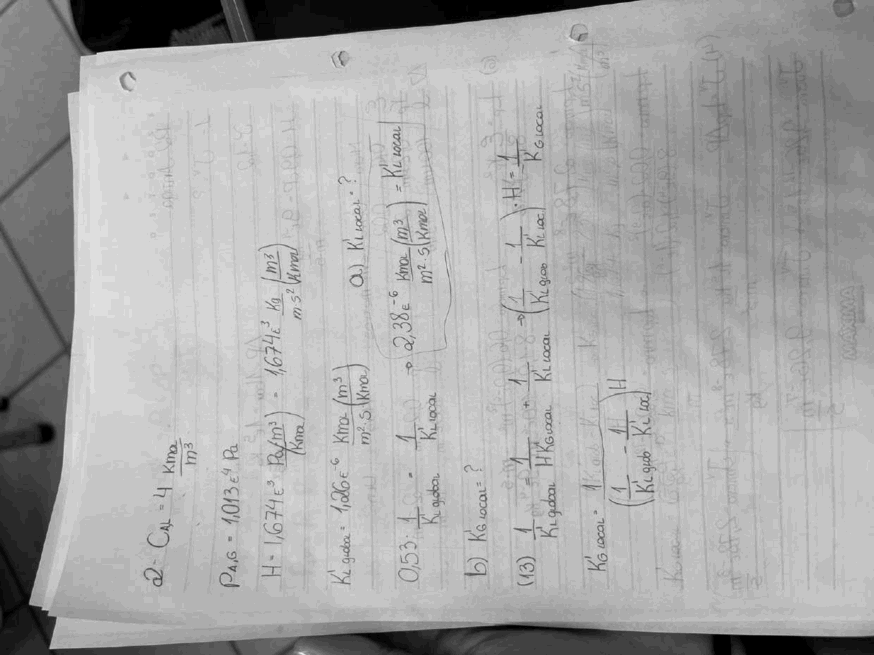 2- CAL = 4 Kmol/m³
PA,G = 1,013ε⁴ Pa
H = 1,674ε³ Pa(m³/Kmol) = 1,674ε³ Kg/m·s² (m³/Kmol)
K'L global = 1,26ε⁻⁶ Kmol/m²·s (m³/Kmol) a) K'L local = ?
0,53 · 1/K'L global = 1/K'L local → 2,38ε⁻⁶ Kmol/m²·s (m³/Kmol) = K'L local
b) KG local = ?
(13) 1/K'L global = 1/H KG local + 1/K'L local → (1/K'L glob - 1/K'L loc) · H = 1/KG local
KG local = 1/(1/K'L glob - 1/K'L loc)H